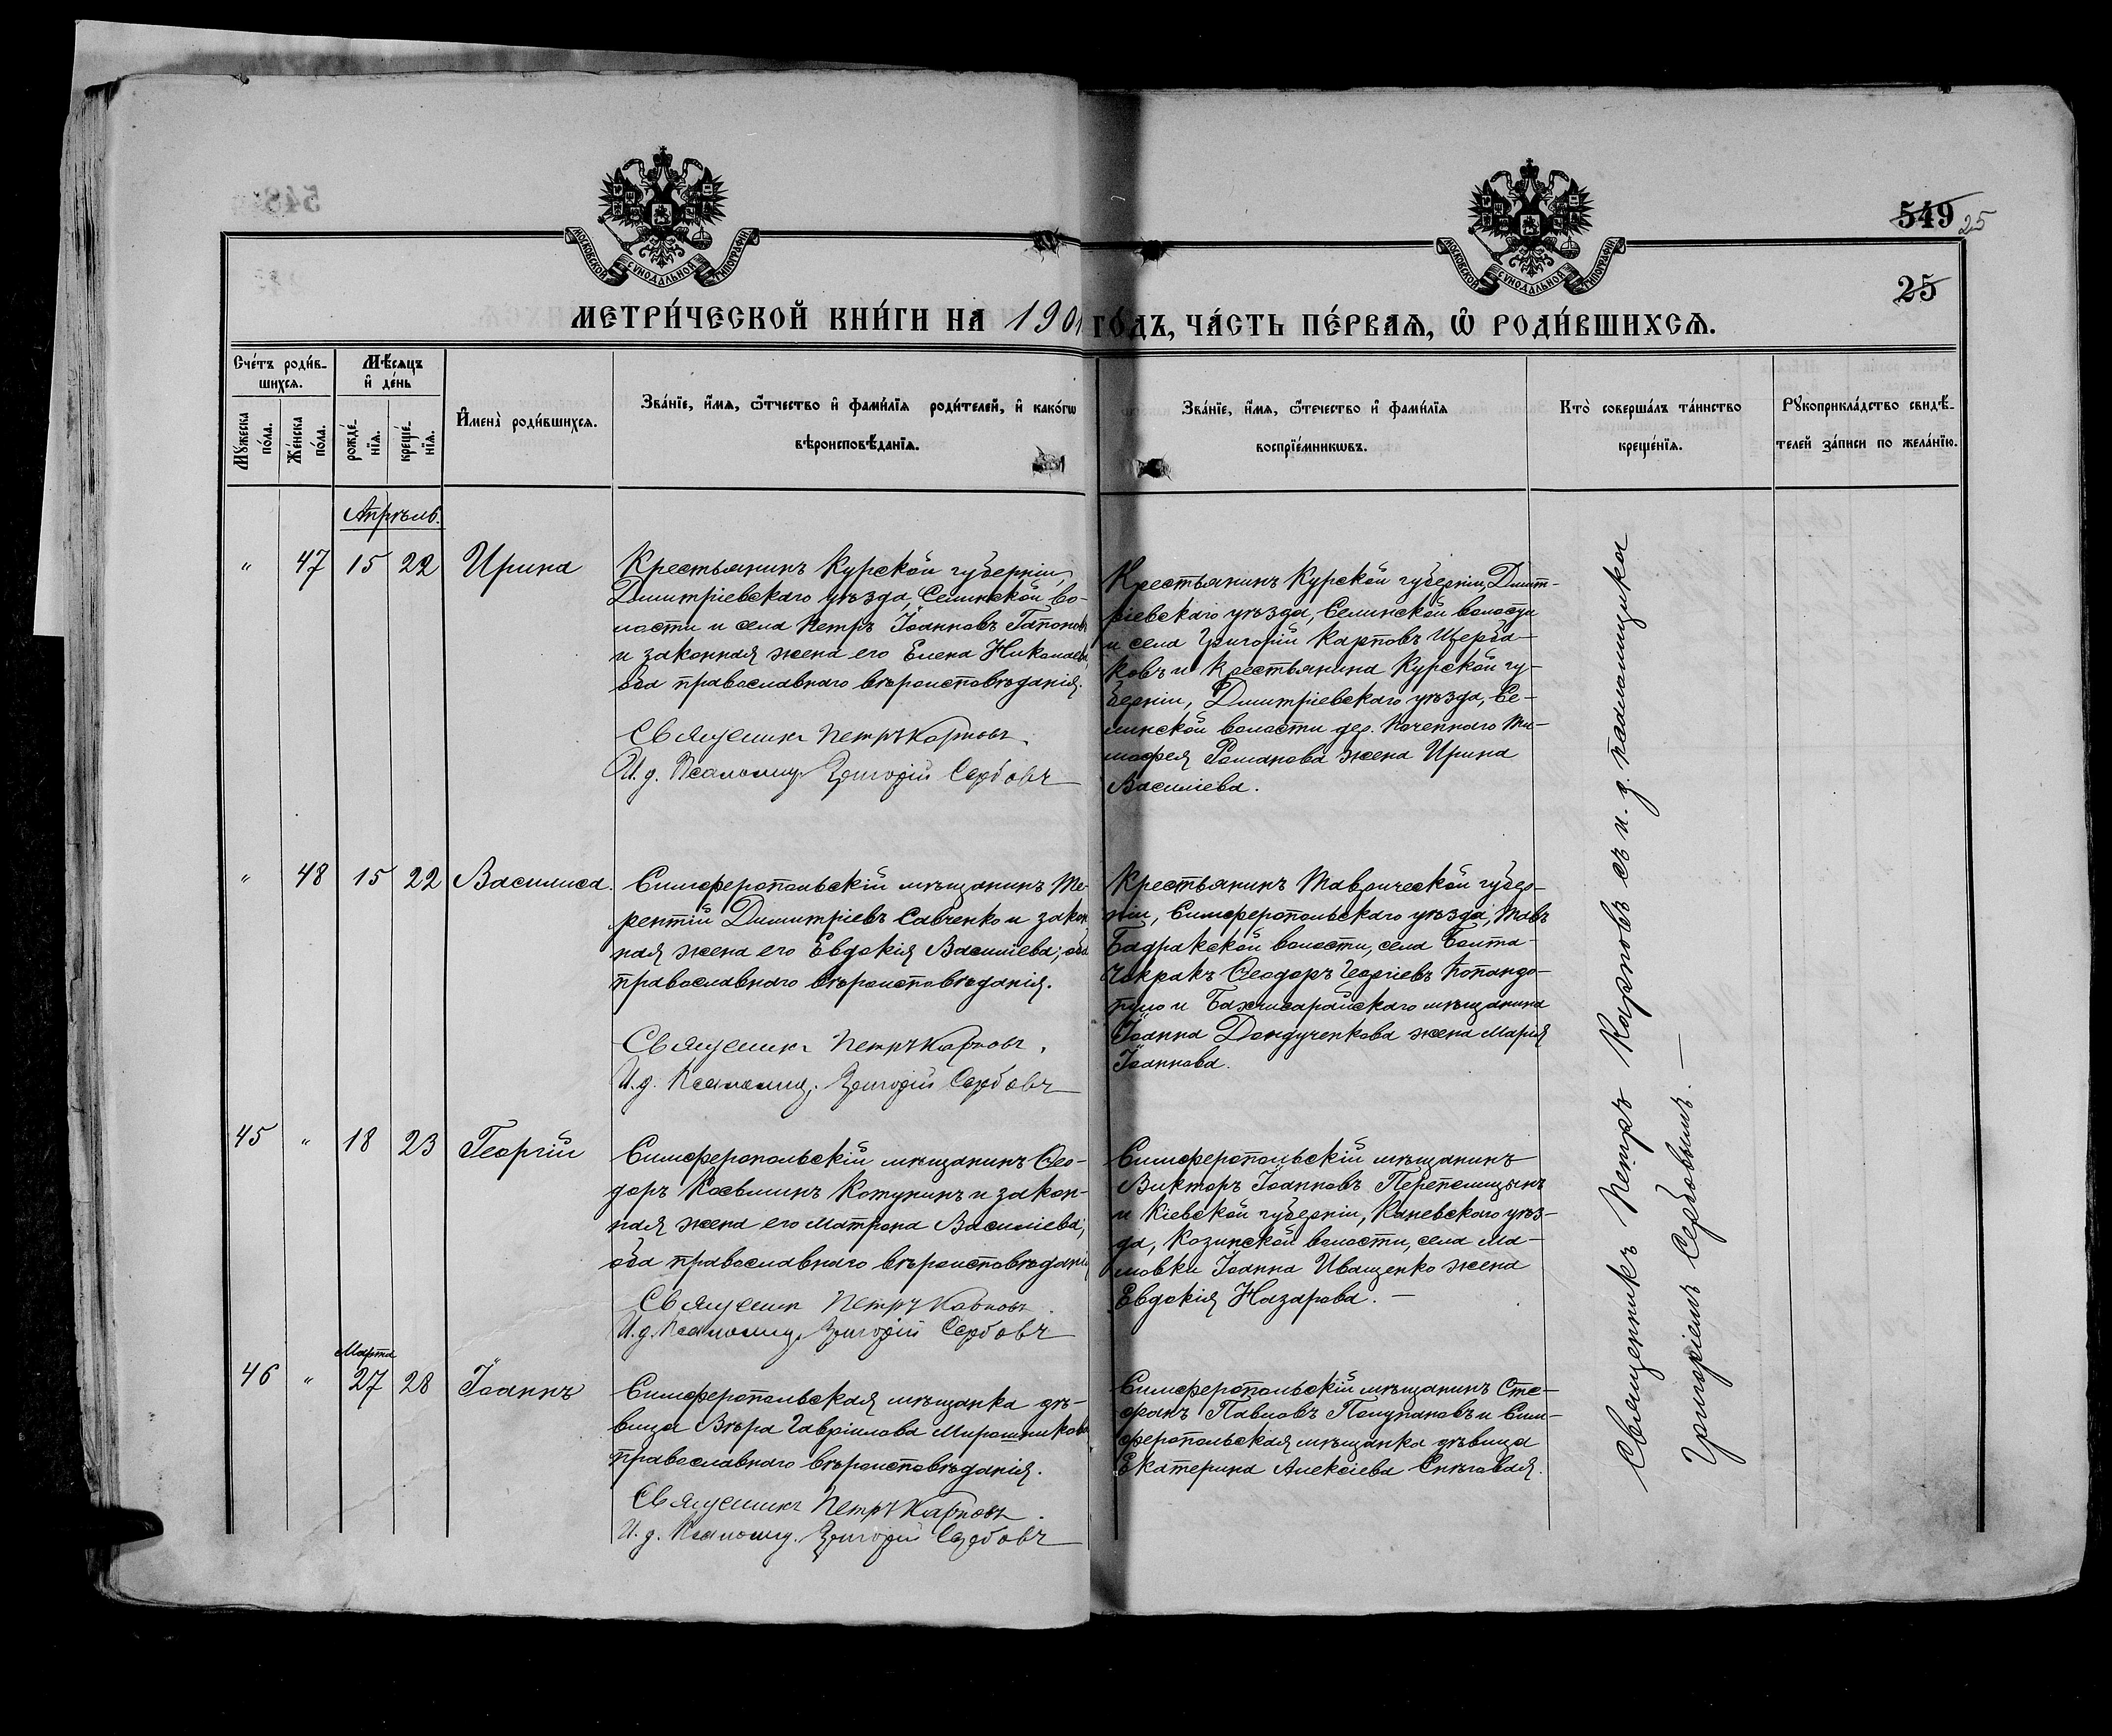 549 25
25
МОСКОВСКОЙ СѴНОДАЛЬНОЙ ТИПОГРАФІИ
МОСКОВСКОЙ СѴНОДАЛЬНОЙ ТИПОГРАФІИ
МЕТРИ́ЧЕСКОЙ КНИ́ГИ НА 1901 ГО́ДЪ, ЧА́СТЬ ПЕ́РВАѦ, Ѽ РОДИ́ВШИХСѦ.
Сче́тъ роди́в-
шихсѧ.
Мꙋжеска по́ла.
Же́нска по́ла.
Мѣ́сѧцъ
и҆ де́нь
рожде́-нїѧ.
креще́-нїѧ.
И҆мена̀ роди́вшихсѧ.
Зва́нїе, и҆́мѧ, ѻ҆́тчество и҆ фами́лїѧ роди́телей, и҆ како́гѡ
вѣроисповѣ́данїѧ.
Зва́нїе, и҆́мѧ, ѻ҆те́чество и҆ фами́лїѧ
воспрїе́мникѡвъ.
Кто̀ соверша́лъ та́инство
креще́нїѧ.
Рꙋкоприкла́дство свидѣ́-
телей за́писи по жела́нїю.
Апрѣль.
" 47 15 22 Ирина
Крестьянинъ Курской губерніи,
Димитріевскаго уѣзда, Селинской во-
лости и села Петръ Іоанновъ Гапоновъ
и законная жена его Елена Николаева,
оба православнаго вѣроисповѣданія.
Священникъ Петръ Карповъ.
И. д. Псаломщ. Григорій Сербовъ
Крестьянинъ Курской губерніи, Димит-
ріевскаго уѣзда, Селинской волости
и села Григорій Карповъ Щерба-
ковъ и крестьянина Курской гу-
берніи, Димитріевскаго уѣзда, Се-
линской волости дер. Поченнаго Ти-
мофея Романова жена Ирина
Василіева.
" 48 15 22 Василиса.
Симферопольскій мѣщанинъ Те-
рентій Димитріевъ Савченко и закон
ная жена его Евдокія Василіева; оба
православнаго вѣроисповѣданія.
Священникъ Петръ Карповъ.
И. д. Псаломщ. Григорій Сербовъ
Крестьянинъ Таврической губер-
ніи, Симферопольскаго уѣзда, Тавъ
Бадракской волости, села Болта-
Чокракъ Ѳеодоръ Георгіевъ Попандо-
пуло и Бахчисарайскаго мѣщанина
Іоанна Дондученкова жена Марія
Іоаннова.
45 " 18 23 Георгій
Симферопольскій мѣщанинъ Ѳео-
доръ Косьминъ Котунинъ и закон-
ная жена его Матрона Василіева;
оба православнаго вѣроисповѣданія
Священникъ Петръ Карповъ.
И. д. Псаломщ. Григорій Сербовъ
Симферопольскій мѣщанинъ
Викторъ Іоанновъ Перепелицынъ
и Кіевской губерніи, Каневскаго уѣз-
да, Козинской волости, села Ма-
ловки Іоанна Иващенко жена
Евдокія Назарова. —
Марта
46 " 27 28 Іоаннъ
Симферопольская мѣщанка дѣ-
вица Вѣра Гавріилова Мирошникова
православнаго вѣроисповѣданія.
Священникъ Петръ Карповъ.
И. д. Псаломщ. Григорій Сербовъ
Симферопольскій мѣщанинъ Сте-
фанъ Павловъ Полупановъ и Сим-
феропольская мѣщанка дѣвица
Екатерина Алексіева Снѣговая.
Священникъ Петръ Карповъ съ и. д. псаломщика
Григоріемъ Сербовымъ. —